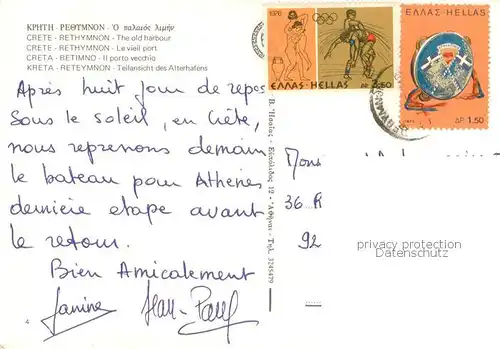 ΚΡΗΤΗ - ΡΕΘΥΜΝΟΝ - Ὁ παλαιός λιμήν
CRETE - RETHYMNON - The old harbour
CRETE - RETHYMNON - Le vieil port
CRETA - RETIMNO - Il porto vecchio
KRETA - RETEYMNON - Teilansicht des Alterhafens
1976
ΕΛΛΑΣ-HELLAS ΔΡ 3.50
ΕΛΛΑΣ-HELLAS
ΔΡ 1,50
Après huit jour de repos
Sous le soleil, en Crète,
nous reprenons demain
le bateau pour Athènes
dernière étape avant
le retour.
Bien Amicalement
Janine Jean-Paul
Εὐπόλιδος 12 - Ἀθῆναι - Τηλ. 3245479
Mons
36 R
92
privacy protection
Datenschutz